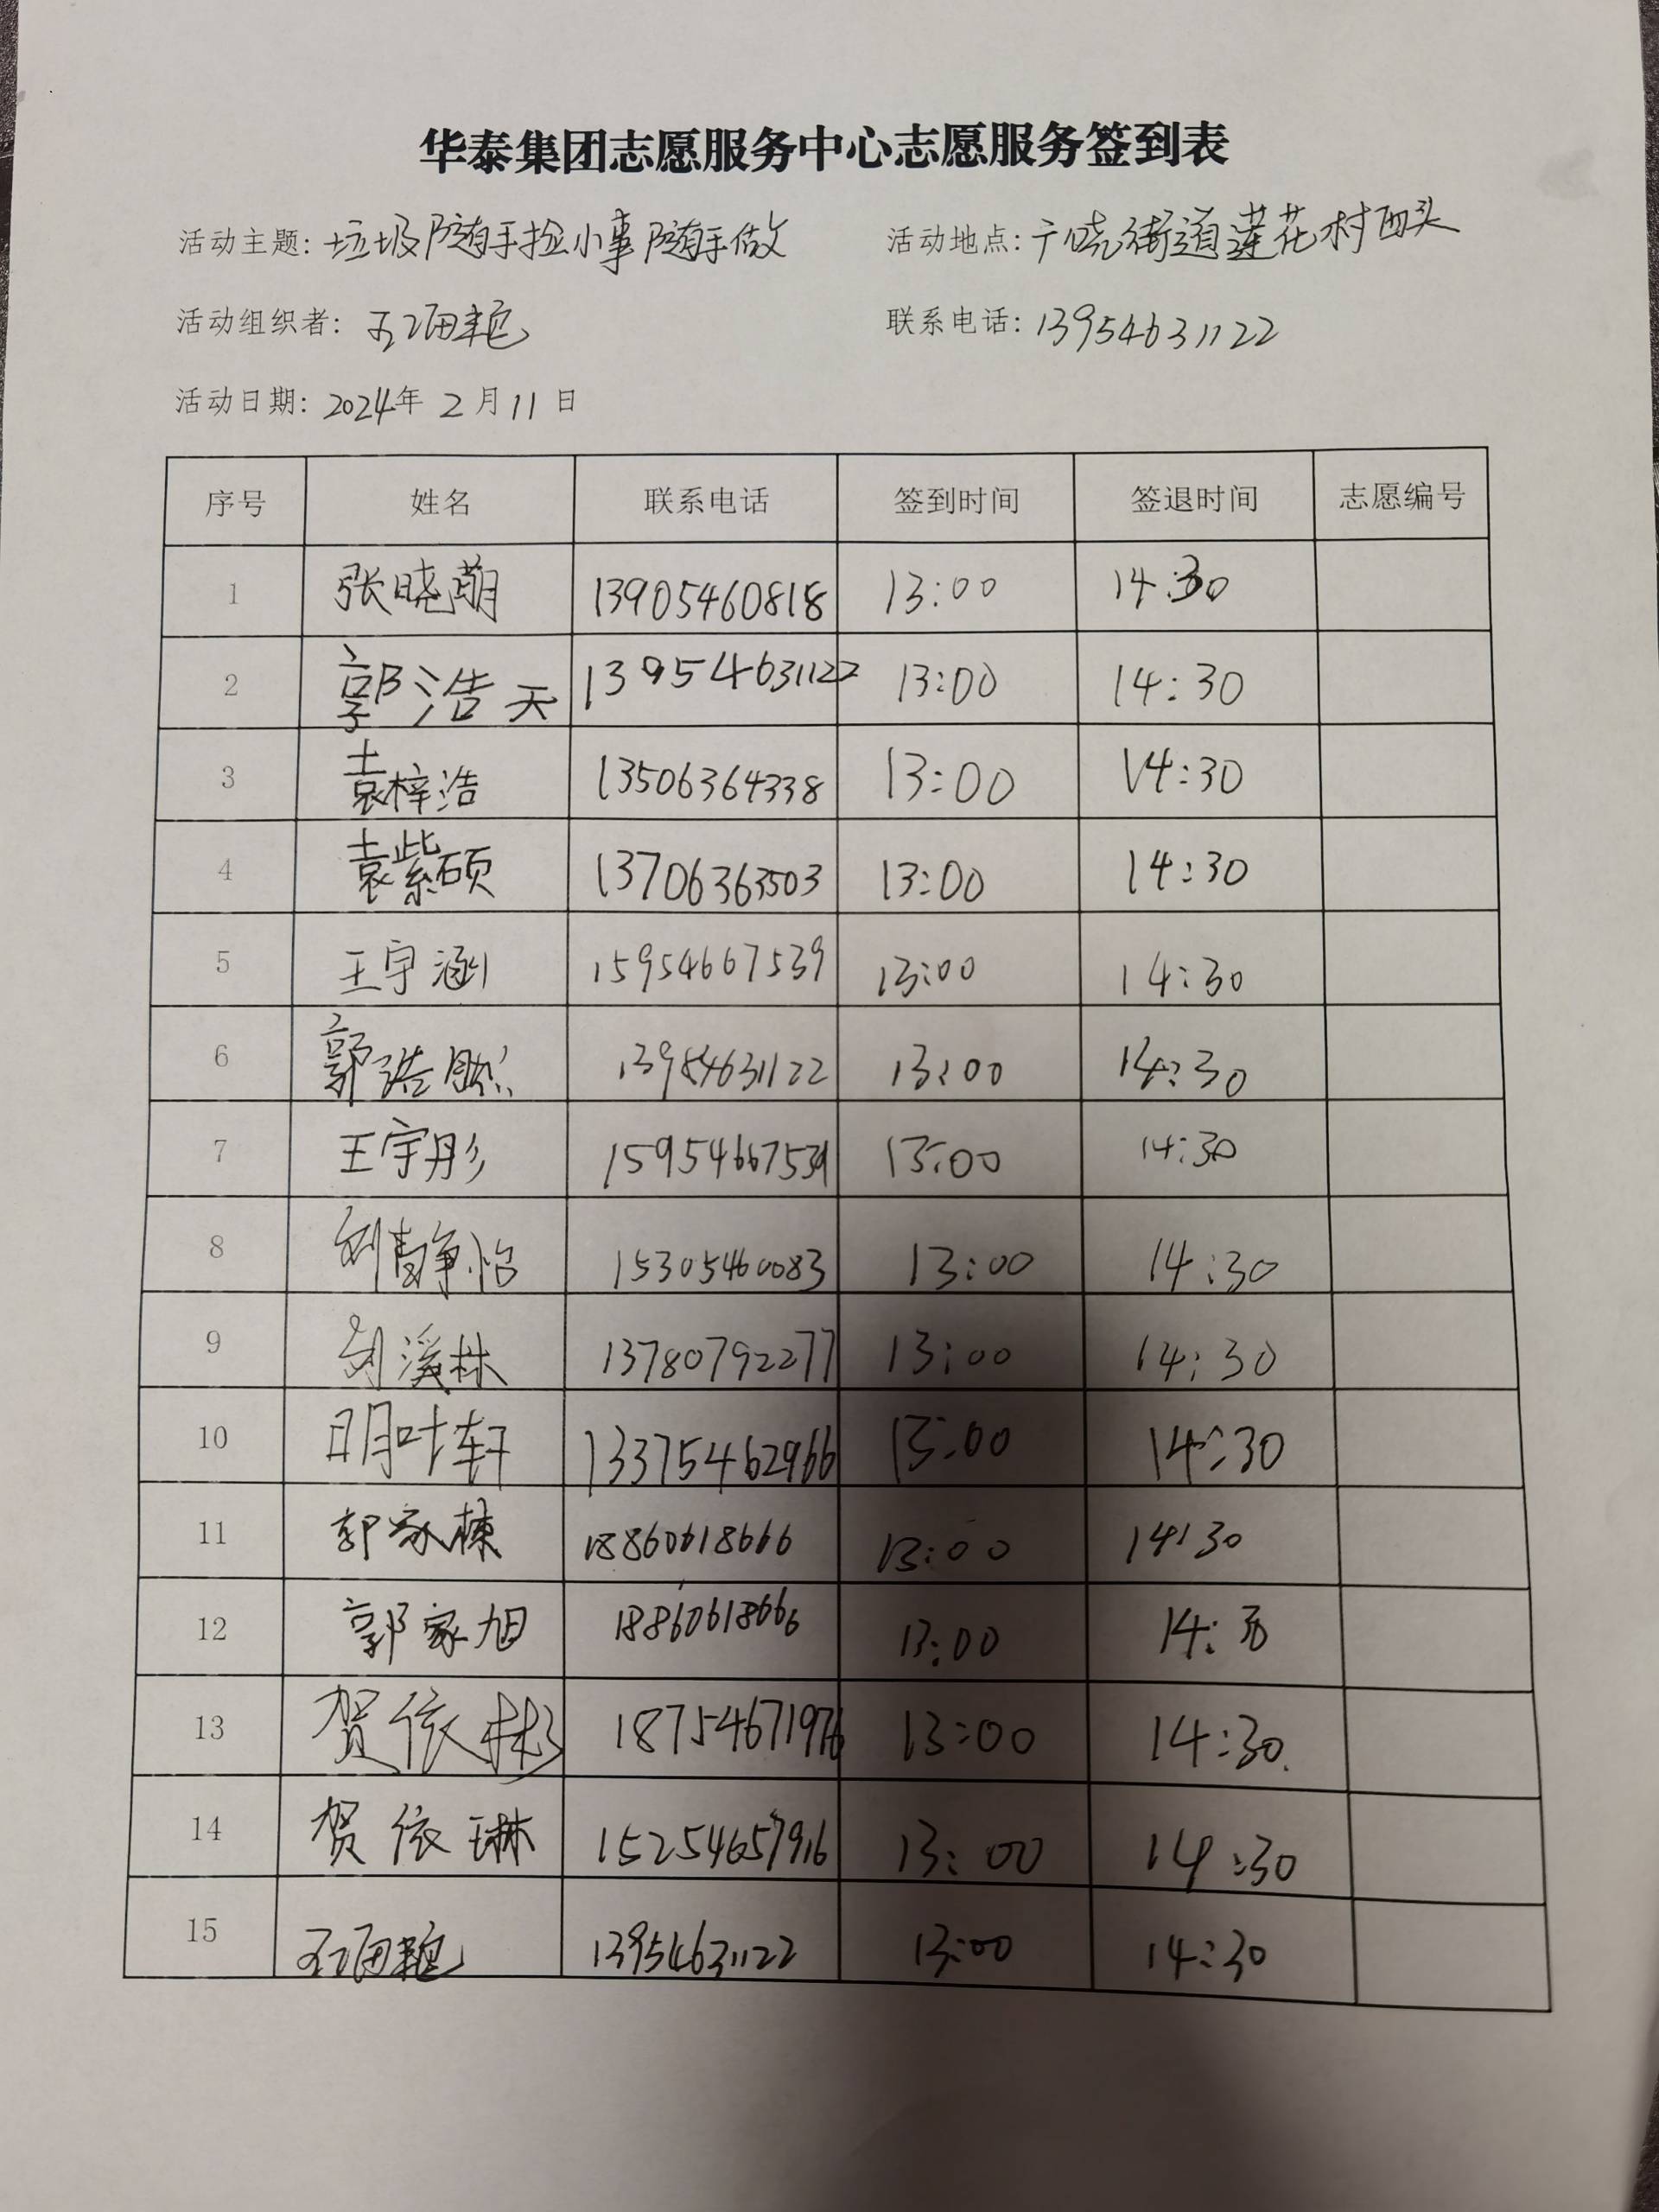 华泰集团志愿服务中心志愿服务签到表
活动主题: 垃圾随手捡小事随手做 活动地点: 广饶街道莲花村西头
活动组织者: 联系电话: 13954631122
活动日期: 2024年 2 月 11 日
序号 姓名 联系电话 签到时间 签退时间 志愿编号
1 张晓萌 13905460818 13:00 14:30
2 郭浩天 13954631122 13:00 14:30
3 袁梓浩 13506364338 13:00 14:30
4 袁紫硕 13706363503 13:00 14:30
5 王宇涵 15954667539 13:00 14:30
6 郭浩然 13:00 14:30
7 王宇彤 15954667539 13:00 14:30
8 刘静怡 15305460083 13:00 14:30
9 刘溪林 13780792277 13:00 14:30
10 明叶轩 13375462966 13:00 14:30
11 郭家栋 18860618666 13:00 14:30
12 郭家旭 18860618666 13:00 14:30
13 贺依彬 18754671976 13:00 14:30
14 贺依琳 13:00 14:30
15 13954631122 13:00 14:30